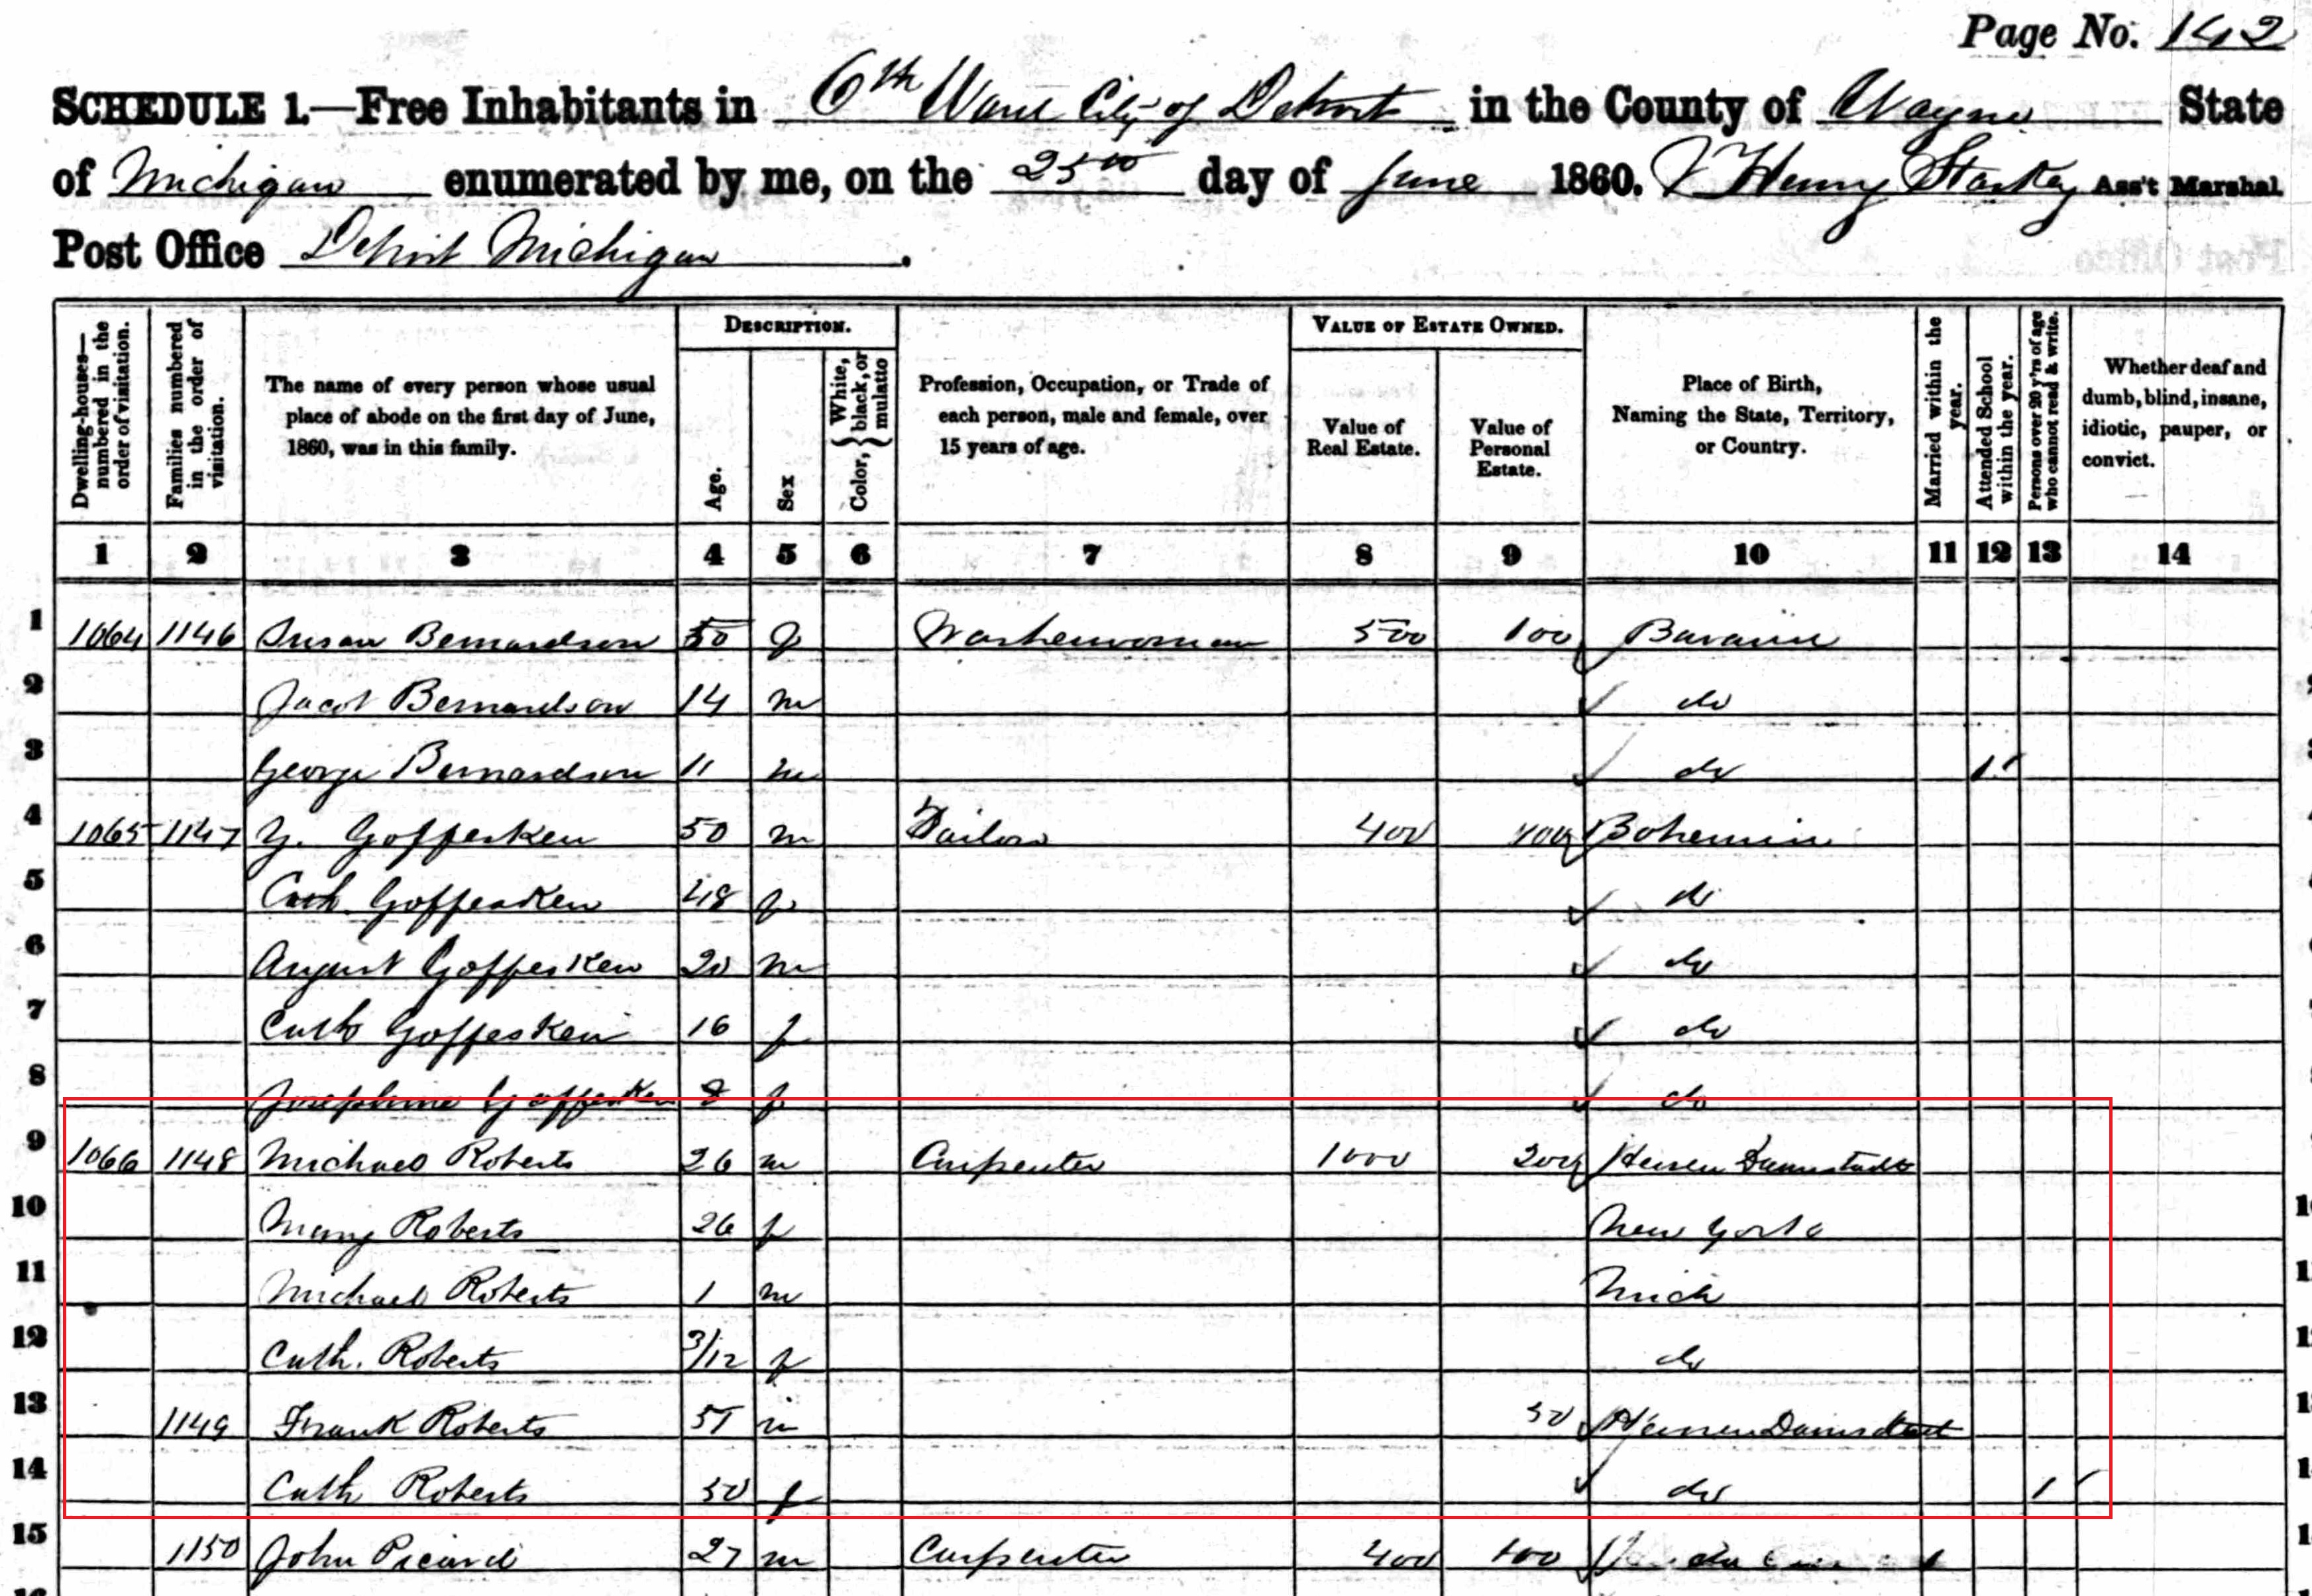 Page No. 142
SCHEDULE 1.—Free Inhabitants in 6th Ward City of Detroit in the County of Wayne State
of Michigan enumerated by me, on the 25th day of June 1860. J Henry Starkey Ass't Marshal
Post Office Detroit Michigan.
Dwelling-houses—numbered in the order of visitation.
Families numbered in the order of visitation.
The name of every person whose usual place of abode on the first day of June, 1860, was in this family.
DESCRIPTION.
Age.
Sex
Color, { White, black, or mulatto
Profession, Occupation, or Trade of each person, male and female, over 15 years of age.
VALUE OF ESTATE OWNED.
Value of Real Estate.
Value of Personal Estate.
Place of Birth, Naming the State, Territory, or Country.
Married within the year.
Attended School within the year.
Persons over 20 y'rs of age who cannot read & write.
Whether deaf and dumb, blind, insane, idiotic, pauper, or convict.
1 2 3 4 5 6 7 8 9 10 11 12 13 14
1 1064 1146 Susan Bernardson 50 f Washerwoman 500 100 Bavaria
2 Jacob Bernardson 14 m do
3 George Bernardson 11 m do 1
4 1065 1147 Y. Goffesken 50 m Tailor 400 100 Bohemia
5 Cath Goffesken 48 f do
6 August Goffesken 20 m do
7 Cath Goffesken 16 f do
8 Josephine Goffesken f do
9 1066 1148 Michael Roberts 26 m Carpenter 1000 200 Hessen Darmstadt
10 Mary Roberts 26 f New York
11 Michael Roberts 1 m Mich
12 Cath. Roberts 3/12 f do
13 1149 Frank Roberts 51 m 50 Hessen Darmstadt
14 Cath Roberts 50 f do 1
15 1150 John Picard 27 m Carpenter 400 100 1